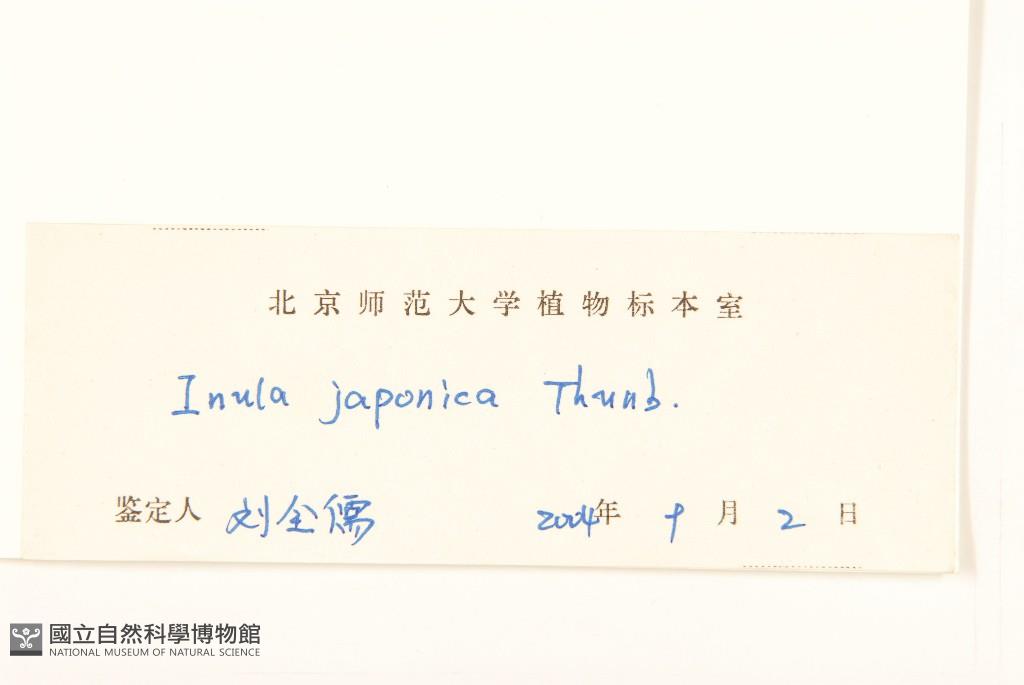 北京师范大学植物标本室
Inula japonica Thunb.
鉴定人 刘全儒 2004年 9月 2日
國立自然科學博物館
NATIONAL MUSEUM OF NATURAL SCIENCE